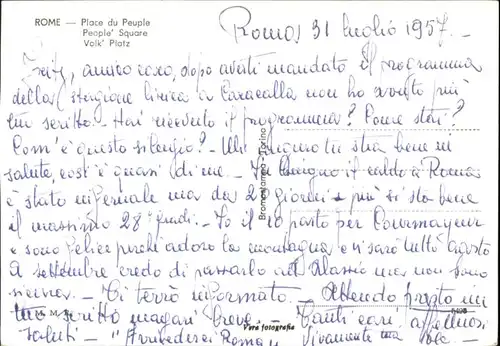 ROME — Place du Peuple
People' Square
Volk' Platz
Roma, 31 luglio 1957. —
Fritz, amico caro, dopo averti mandato il programma
della stagione lirica a Caracalla non ho avuto più
un scritto. — Hai ricevuto il programma? Come stai?
Com'è questo silenzio? — Mi auguro tu stia bene in
salute, così è quasi di me. — In giugno il caldo a Roma
è stato infernale ma da 20 giorni più si sta bene
il massimo 28 gradi. — Io il 10 parto per Courmayeur
e sono felice perchè adoro la montagna e vi sarò tutto agosto
A settembre credo di passarlo ad Alassio ma non sono
sicura. — Ti terrò informato. — Attendo presto un
tuo scritto magari breve. — Tanti cari affettuosi
saluti — "Arrivederci Roma"
Vivamente tua
Vera fotografia
Bromostampa - Torino